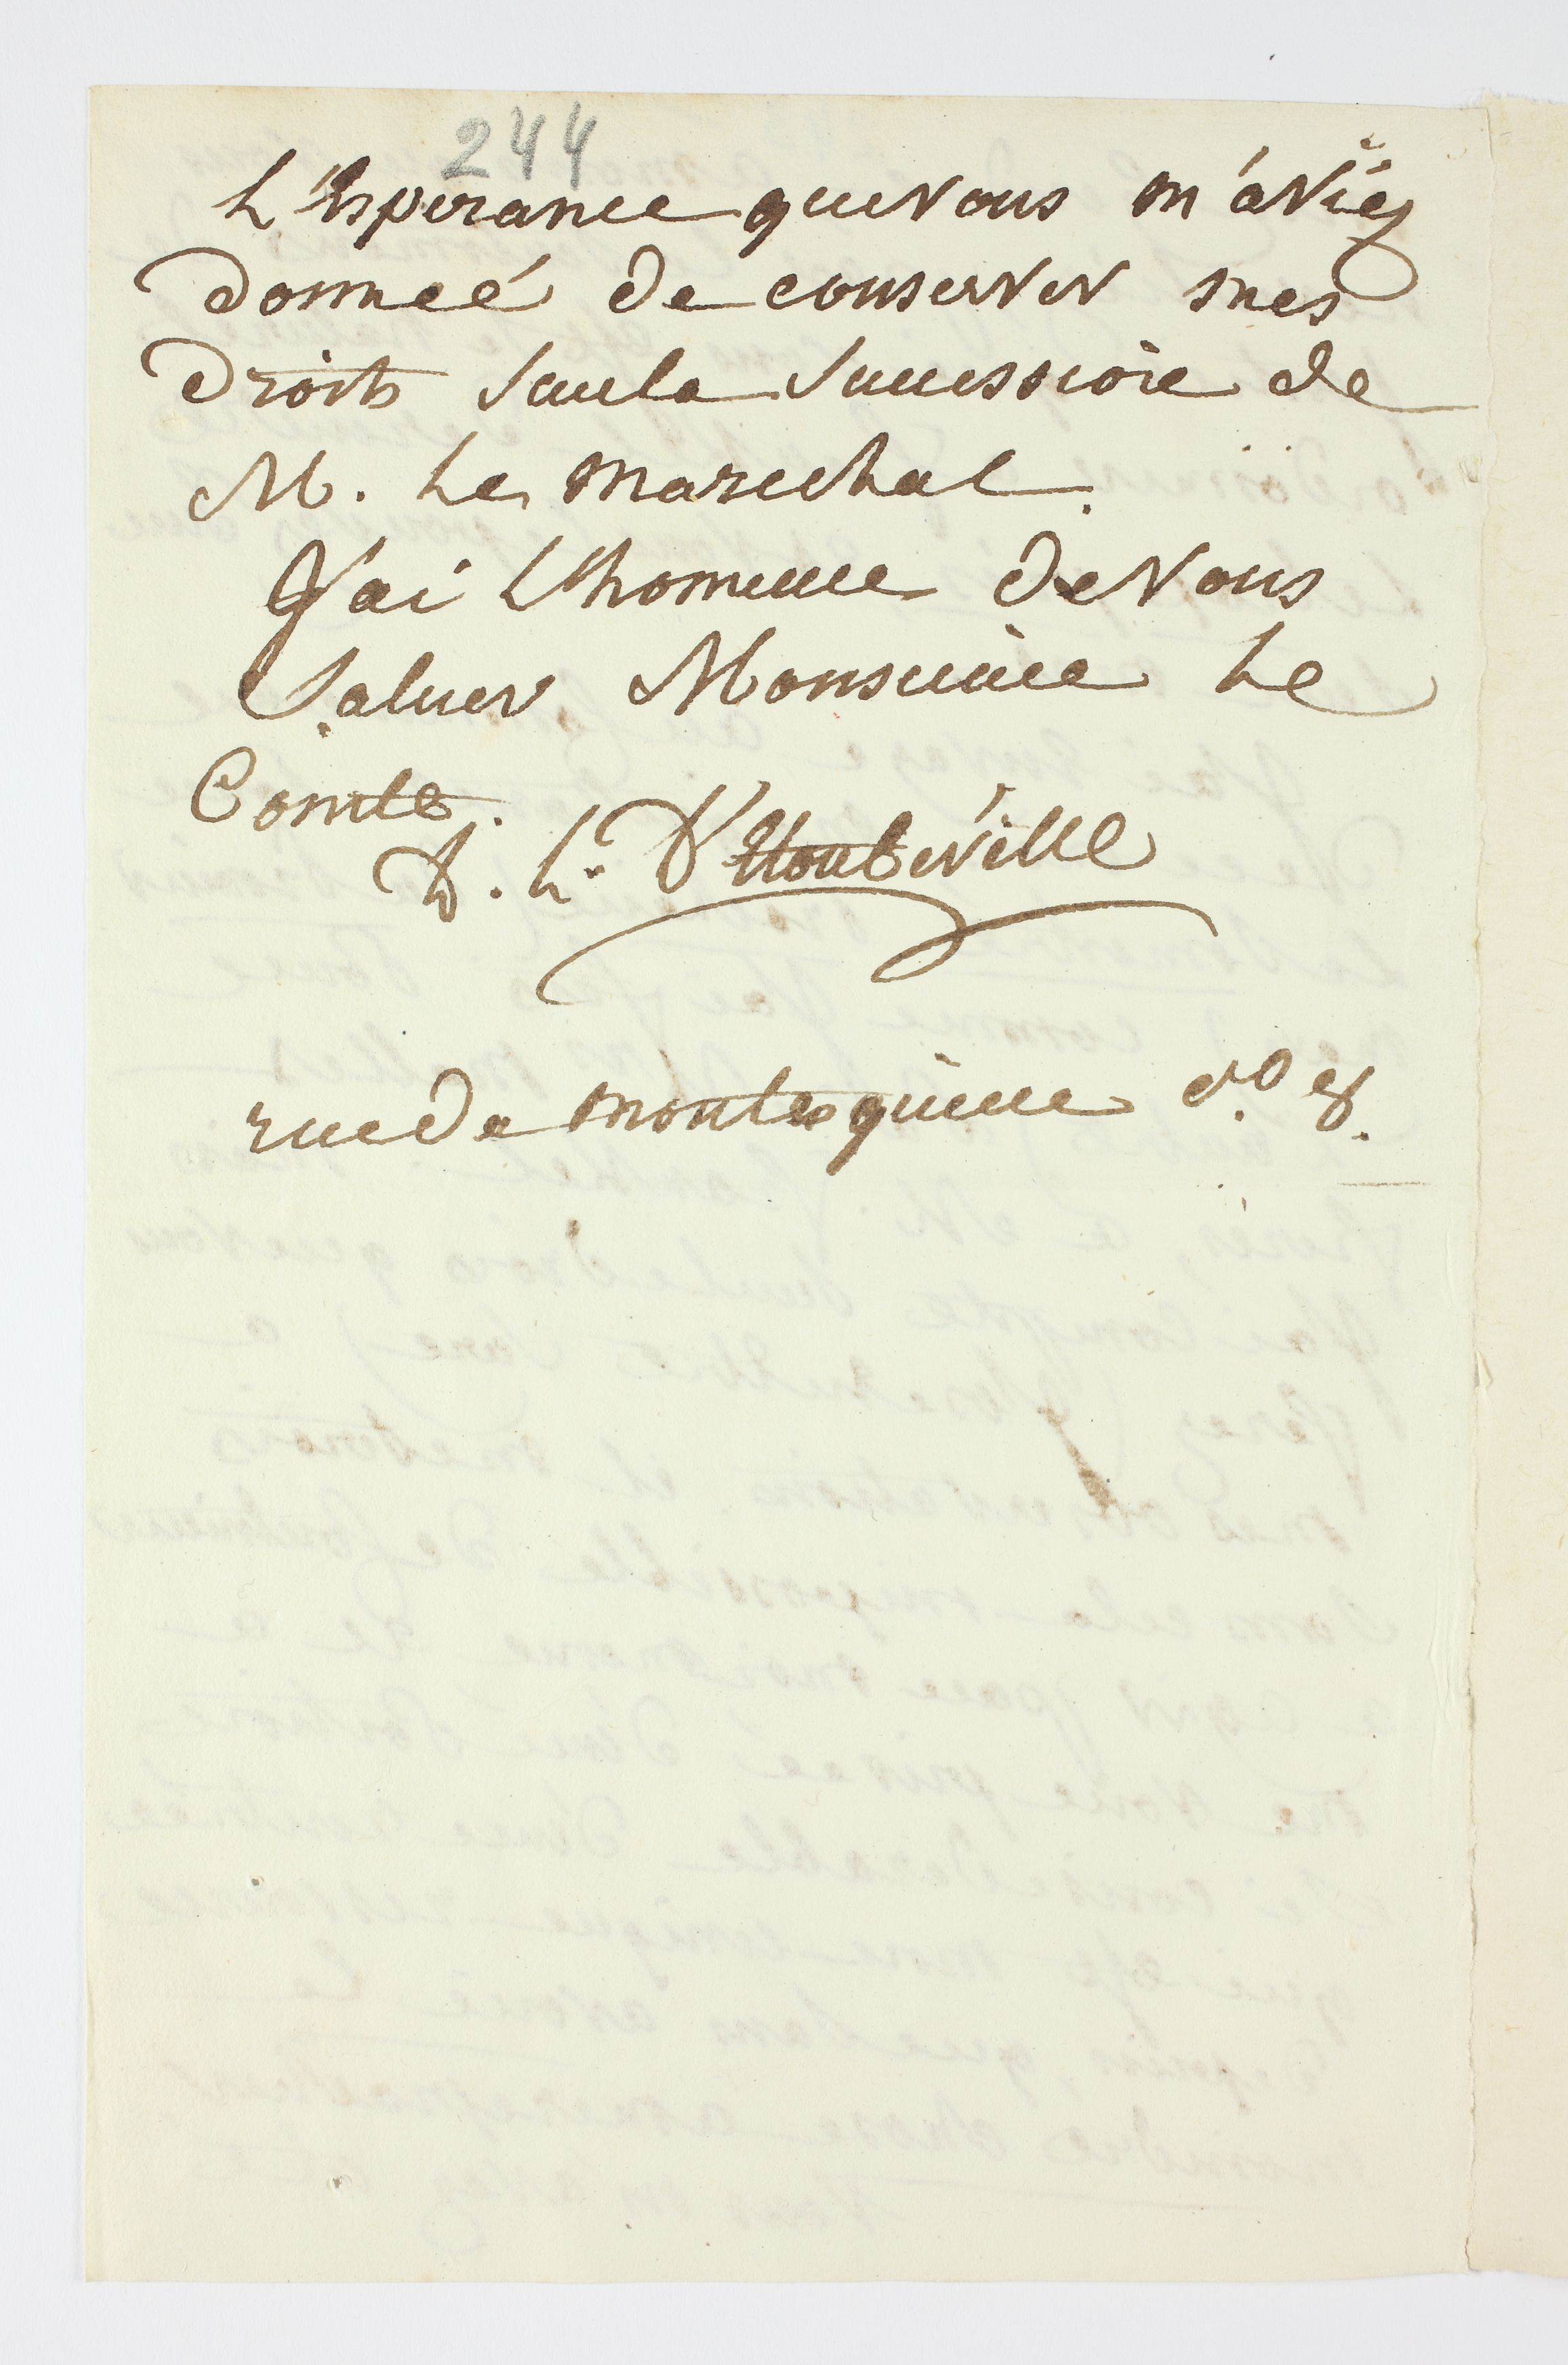 244
L'Esperance que vous m'aviéz
donneé de conserver mes
droits sur la Succession de
M. Le Marechal.
J'ai L'honneur de vous
Saluer Monsieur Le
Comte.
D. L.e D'Houdeville
rue de montesquieu No 8.